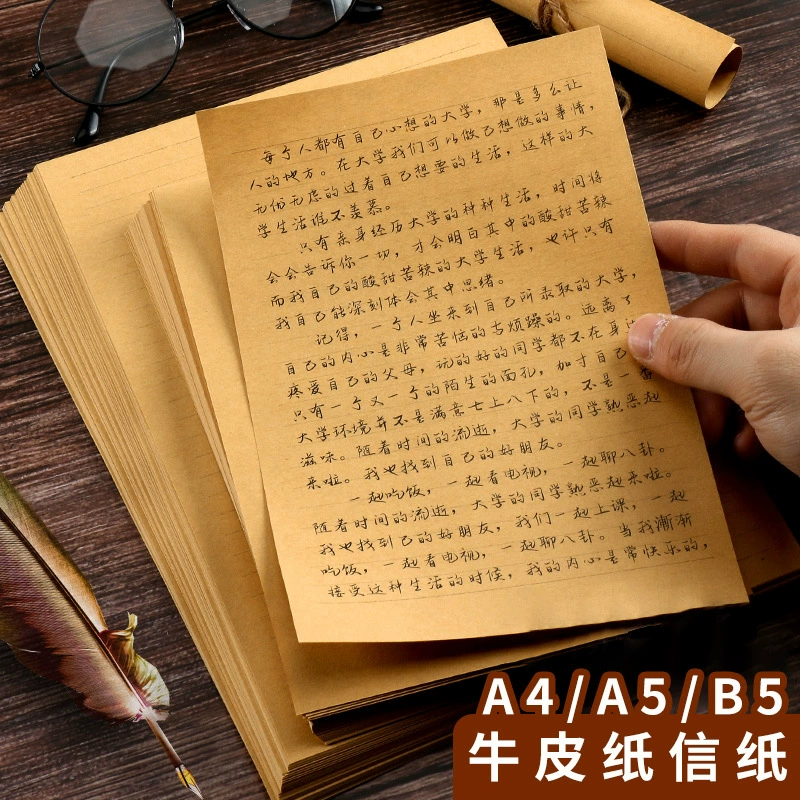 每个人都有自己心想的大学，那是多么让
人的地方。在大学我们可以做己想做的事情，
无忧无虑的过着自己想要的生活，这样的大
学生活谁不羡慕。
只有亲身经历大学的种种生活，时间将
会会告诉你一切，才会明白其中的酸甜苦辣
而我自己的酸甜苦辣的大学生活，也许只有
我自己能深刻体会其中思绪。
记得，一个人坐来到自己所录取的大学，
自己的内心是非常苦恼的与烦躁的。远离了
疼爱自己的父母，玩的好的同学都不在身边
只有一个又一个的陌生的面孔，加寸自己
大学环境并不是满意七上八下的，不是一番
滋味。随着时间的流逝，大学的同学熟悉起
来啦。我也找到自己的好朋友。
一起吃饭，一起看电视，一起聊八卦。
随着时间的流逝，大学的同学熟悉起来啦。
我也找到己的好朋友，我们一起上课，一起
吃饭，一起看电视，一起聊八卦。当我渐渐
接受这种生活的时候，我的内心是常快乐的，
A4/A5/B5
牛皮纸信纸